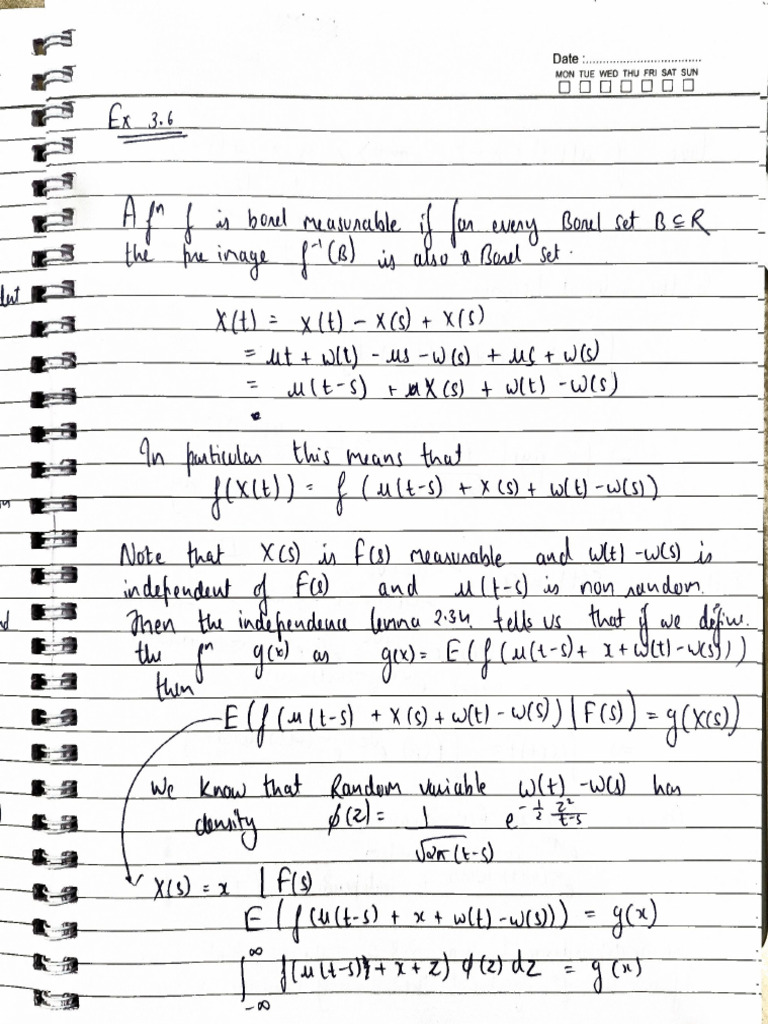 Date :
MON TUE WED THU FRI SAT SUN
Ex 3.6
A fⁿ f is borel measurable if for every Borel set B ⊆ R
the pre image f⁻¹(B) is also a Borel set.
X(t) = X(t) - X(s) + X(s)
= μt + W(t) - μs - W(s) + μs + W(s)
= μ(t-s) + X(s) + W(t) - W(s)
In particular this means that
f(X(t)) = f(μ(t-s) + X(s) + W(t) - W(s))
Note that X(s) is F(s) measurable and W(t) - W(s) is
independent of F(s) and μ(t-s) is non random.
Then the independence lemma 2.34. tells us that if we define
the fⁿ g(x) as g(x) = E(f(μ(t-s) + x + W(t) - W(s)))
then
E(f(μ(t-s) + X(s) + W(t) - W(s)) | F(s)) = g(X(s))
We know that Random variable W(t) - W(s) has
density φ(z) = 1/√2π(t-s) e^{-1/2 z²/t-s}
X(s) = x | F(s)
E(f(μ(t-s) + x + W(t) - W(s))) = g(x)
∫_{-∞}^{∞} f(μ(t-s) + x + z) φ(z) dz = g(x)